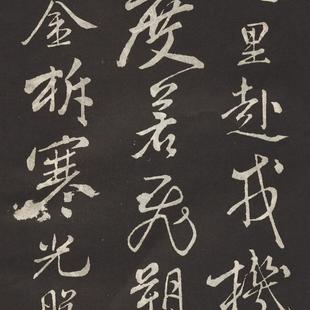 里赴戎機
度若飛朔
金柝寒光照